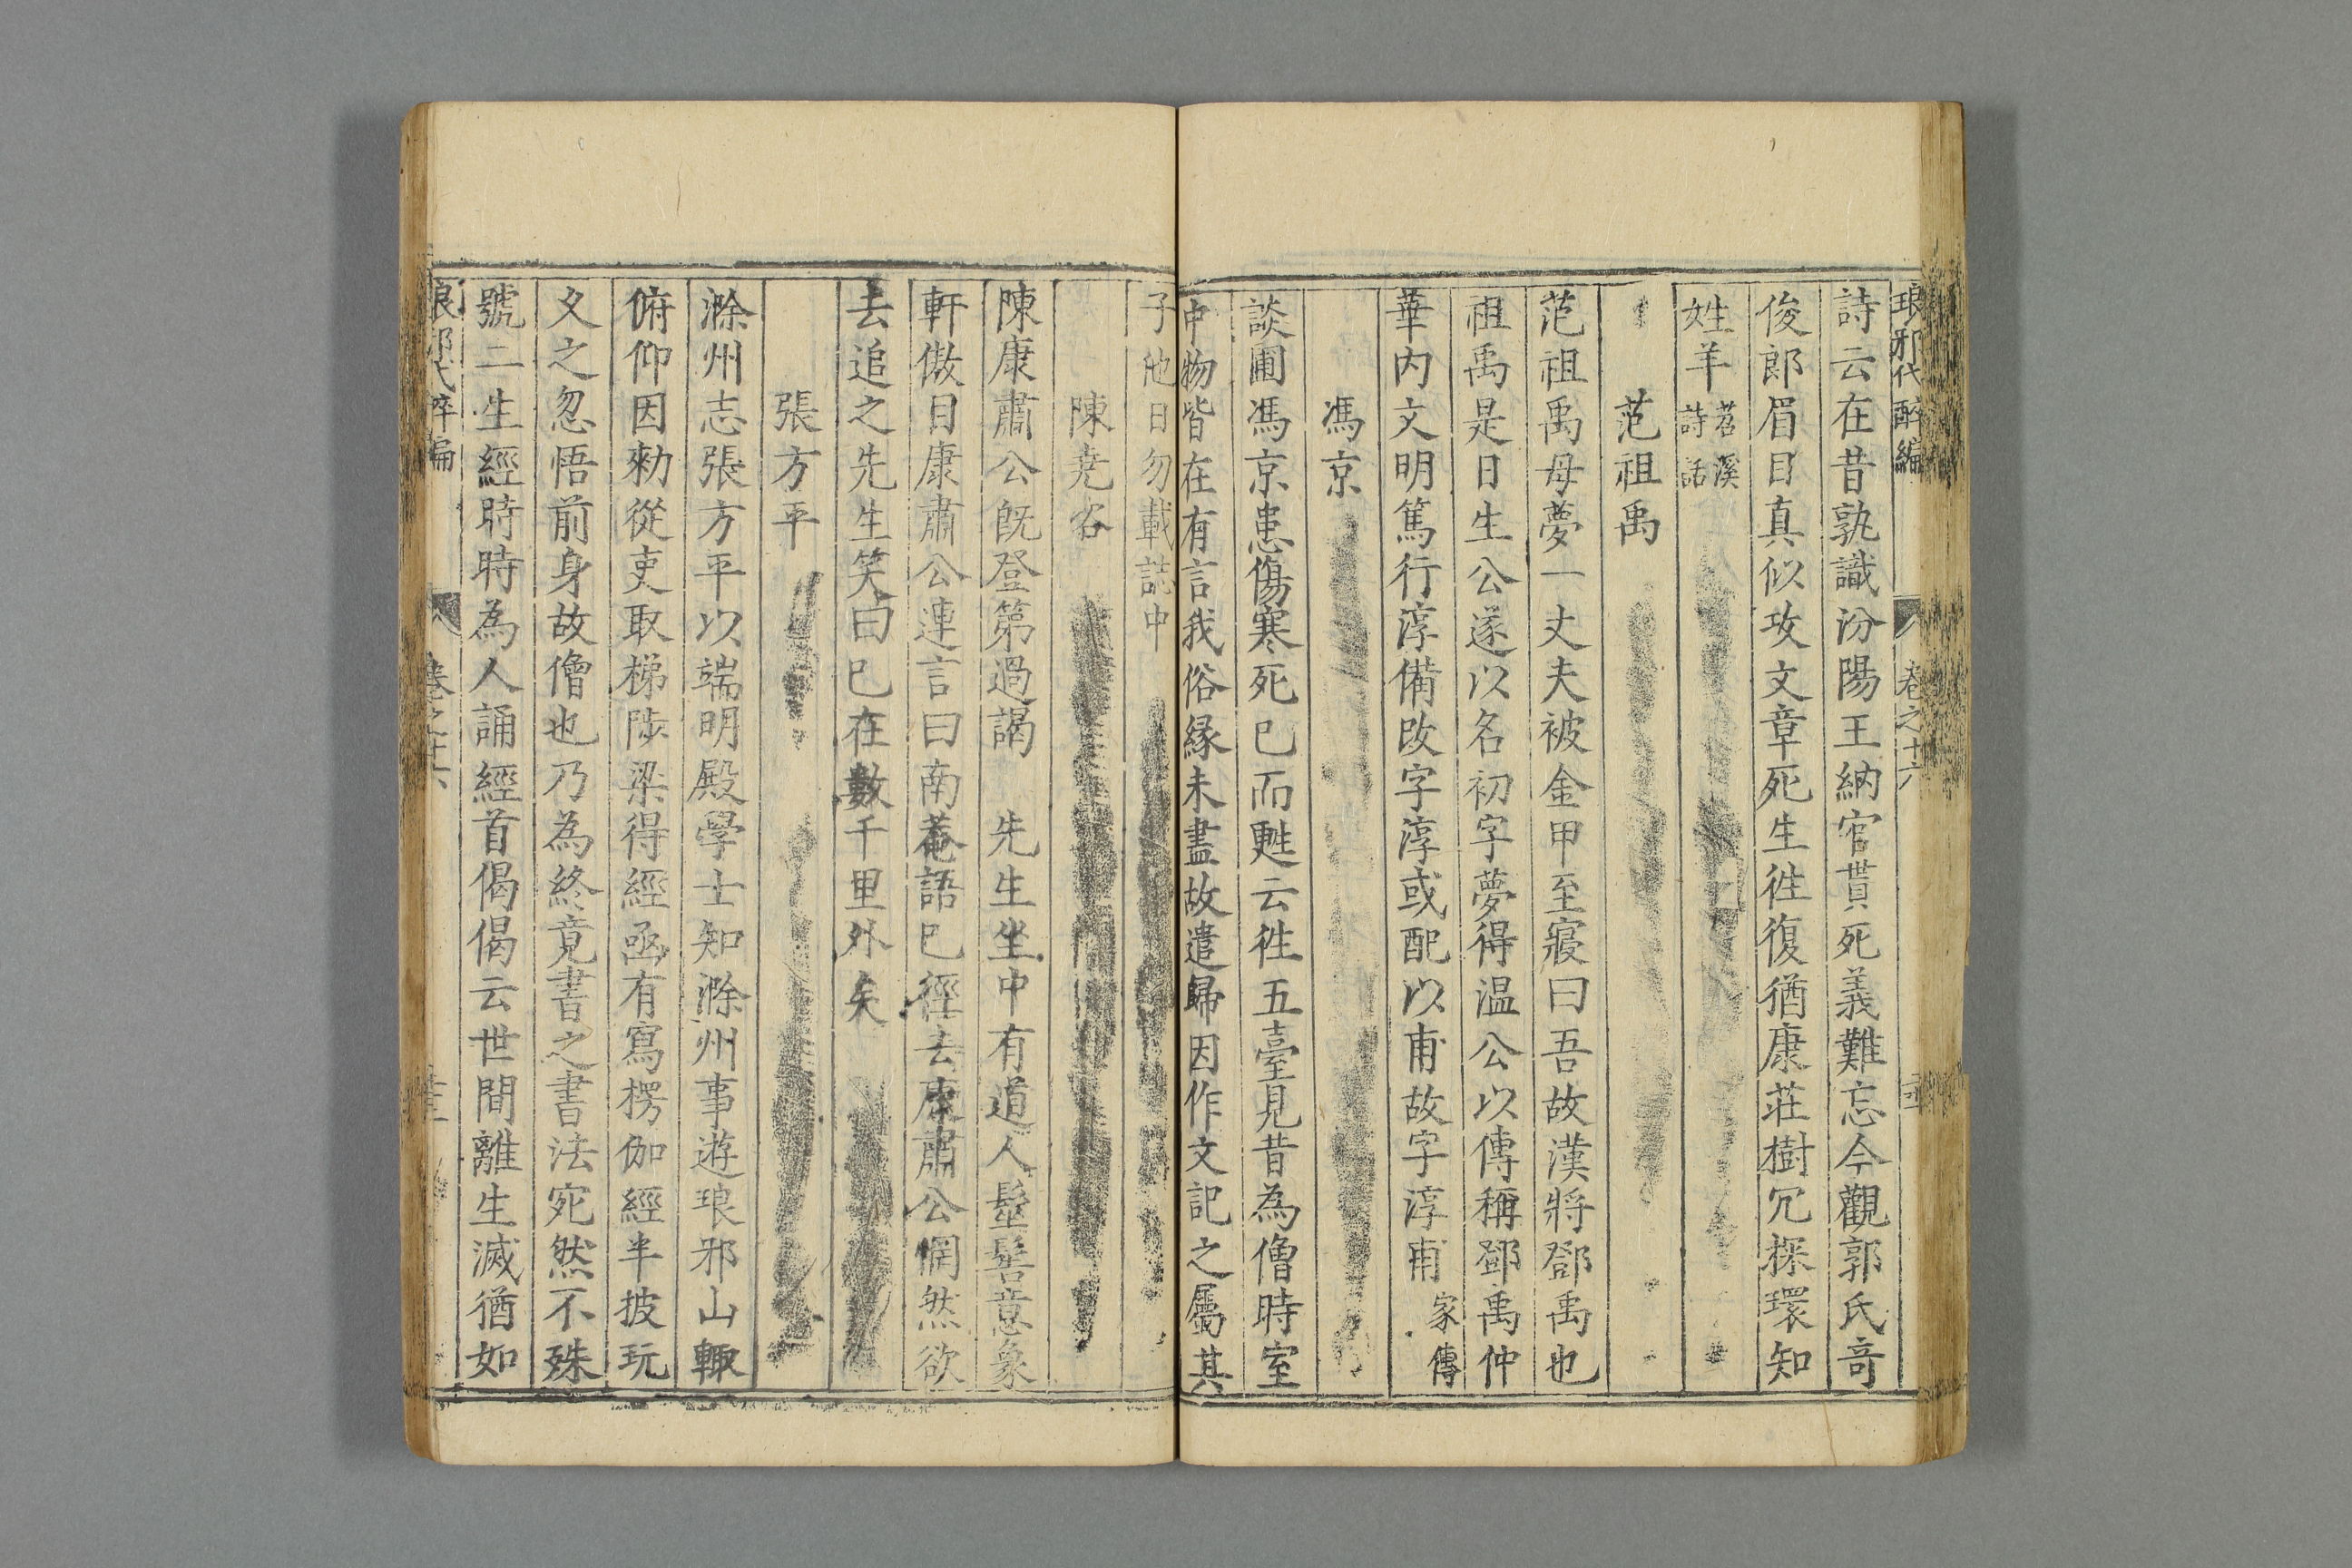 琅邪代醉編 卷之十六
詩云在昔孰識汾陽王納官貰死義難忘今觀郭氏奇
俊郎眉目真似攻文章死生徃復猶康莊樹冗探環知
姓羊苕溪詩話
范祖禹
范祖禹母夢一丈夫被金甲至寢曰吾故漢將鄧禹也
祖禹是日生公遂以名初字夢得温公以傳稱鄧禹仲
華内文明篤行淳備改字淳或配以甫故字淳甫家傳
馮京
談圃馮京患傷寒死巳而甦云徃五臺見昔為僧時室
中物皆在有言我俗緣未盡故遣歸因作文記之屬其
子他日勿載誌中
陳尭咨
陳康肅公旣登第過謁 先生坐中有道人髽髻意象
軒傲目康肅公連言曰南菴語巳徑去康肅公惘然欲
去追之先生笑曰巳在數千里外矣
張方平
滁州志張方平以端明殿學士知滁州事遊琅邪山輙
俯仰因勑從吏取梯陟梁得經函有寫楞伽經半披玩
久之忽悟前身故僧也乃為終竟書之書法宛然不殊
號二生經時時為人誦經首偈偈云世間離生滅猶如
琅邪代醉編 卷之十六